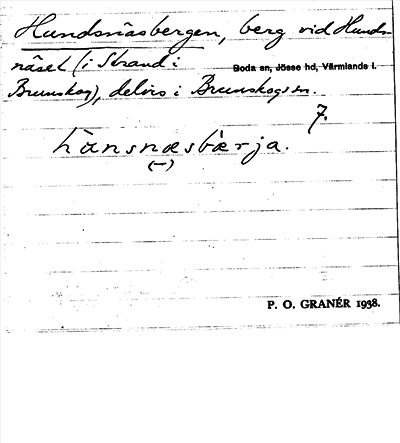 Hundsnäsbergen, berg vid Hunds-
näset (i Strand i Boda sn, Jösse hd, Värmlands l.
Brunskog), delvis i Brunskogs sn.
7.
hànsnæsbærja.
(–)
P. O. GRANÉR 1938.